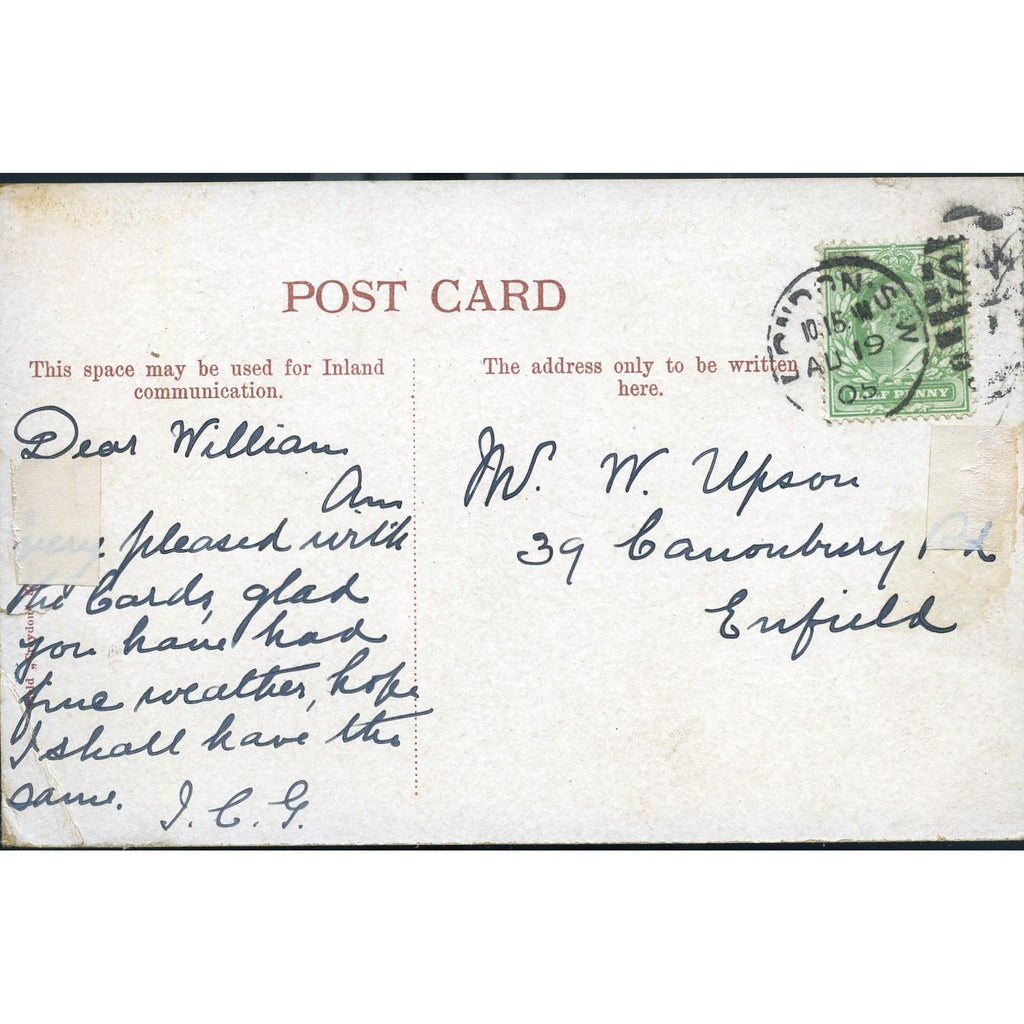 POST CARD
This space may be used for Inland
communication.
The address only to be written
here.
LONDON. S.W
10.15
AU 19
05
HALF PENNY
Dear William
Am
very pleased with
the Cards, glad
you have had
fine weather, hope
I shall have the
same.
J. C. G.
Mr. W. Upson
39 Canonbury Rd
Enfield